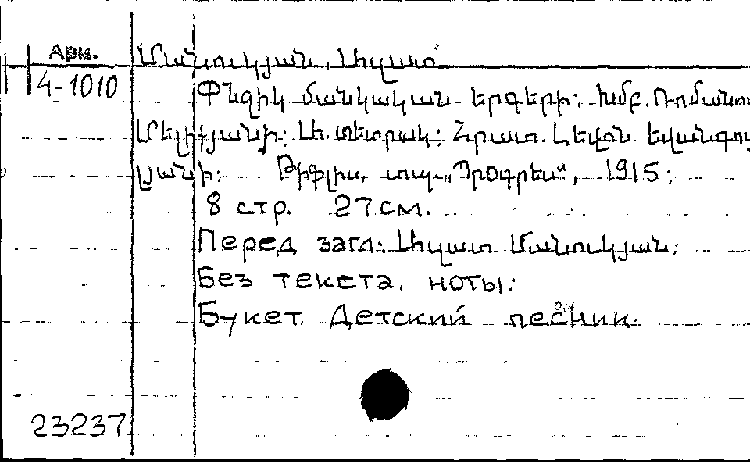 Арм.
4-1010
Մանուկյան, Ազատ
Փնջիկ մանկական երգերի: Խմբ. Ռոմանոս
Մելիքյանի: Ա. տետրակ: Հրատ. Լեվոն Եվանգու-
լյանի: Թիֆլիս, տպ. „Պրօգրես“, 1915:
8 стр. 27 см.
Перед загл: Ազատ Մանուկյան:
Без текста, ноты:
Букет. Детский песник.
23237